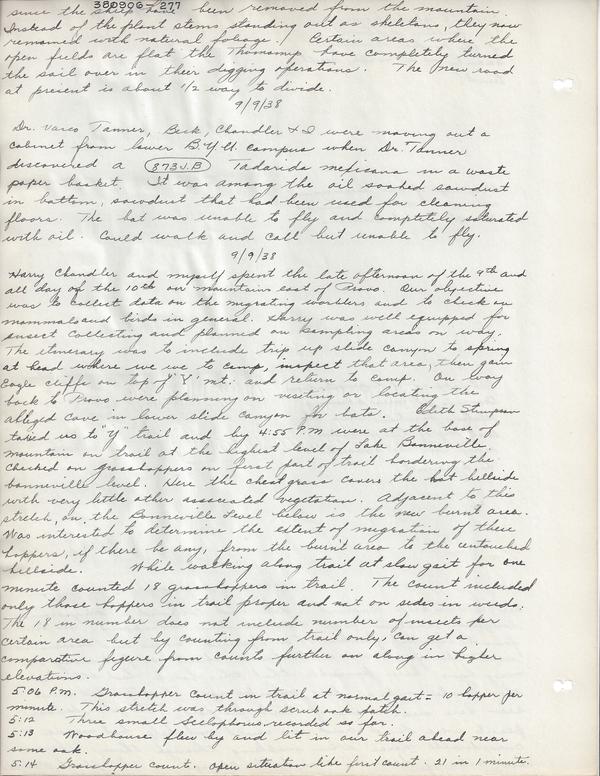 380906-277
since the sheep have been removed from the mountain.
Instead of the plant stems standing out as skeletons, they now
remained with natural foliage. Certain areas where the
open fields are flat the Thomomys have completely turned
the soil over in their digging operations. The new road
at present is about 1/2 way to divide.
9/9/38
Dr. Vasco Tanner, Beck, Chandler & I were moving out a
cabinet from lower B.Y.U. campus when Dr. Tanner
discovered a 873J.B Tadarida mexicana in a waste
paper basket. It was among the oil soaked sawdust
in bottom, sawdust that had been used for cleaning
floors. The bat was unable to fly and completely saturated
with oil. Could walk and call but unable to fly.
9/9/38
Harry Chandler and myself spent the late afternoon of the 9th and
all day of the 10th on mountains east of Provo. Our objective
was to collect data on the migrating warblers and to check on
mammals and birds in general. Harry was well equipped for
insect collecting and planned on sampling areas on way.
The itinerary was to include trip up slide canyon to spring
at head where we we to camp, inspect that area, then gain
Eagle cliffs on top of "Y" mt. and return to camp. On way
back to Provo were planning on visiting or locating the
alleged cave in lower slide canyon for bats. Edeth Stimpson
taxied us to "Y" trail and by 4:55 P.M were at the base of
mountain on trail at the highest level of Lake Bonneville
Checked on grasshoppers on first part of trail bordering the
bonneville level. Here the cheatgrass covers the hot hillside
with very little other associated vegetation. Adjacent to this
stretch, on the Bonneville Level below is the new burnt area.
Was interested to determine the extent of migration of these
hoppers, if there be any, from the burnt area to the untouched
hillside. While walking along trail at slow gait for one
minute counted 18 grasshoppers in trail. The count included
only those hoppers in trail proper and not on sides in weeds.
The 18 in number does not include number of insects per
certain area but by counting from trail only, can get a
comparative figure from counts further on along in higher
elevations.
5:06 P.M. Grasshopper count in trail at normal gait = 10 hopper per
minute. This stretch was through scrub oak patch.
5:12 Three small Sceloporus recorded so far.
5:13 Woodhouse flew by and lit in our trail ahead near
some oak.
5:14 Grasshopper count. Open situation like first count. 21 in 1 minute.